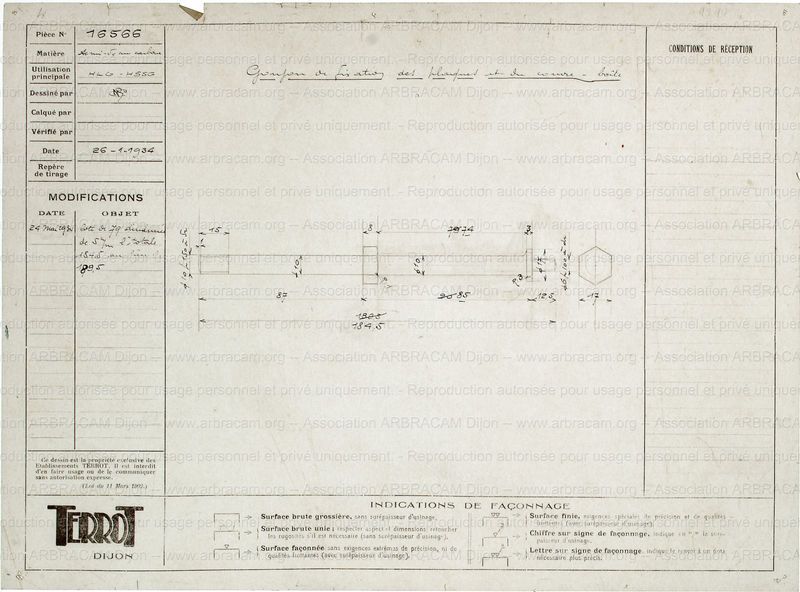 Pièce N° 16566
Matière
Utilisation principale HLG - HSSG
Dessiné par
Calqué par
Vérifié par
Date 26-1-1934
Repère de tirage
Goujon de fixation des plaques et du couvre-boîte
CONDITIONS DE RÉCEPTION
MODIFICATIONS
DATE OBJET
24 Mai
cote de 79 diminuée
de 5 m/m
184.5 au lieu de
189.5
15
3
74
3
10
10
87
85
12.5
17
184.5
Ce dessin est la propriété exclusive des
Etablissements TERROT. Il est interdit
d'en faire usage ou de le communiquer
sans autorisation expresse.
(Loi du 11 Mars 1902.)
TERROT
DIJON
INDICATIONS DE FAÇONNAGE
Surface brute grossière, sans surépaisseur d'usinage.
Surface brute unie; respecter aspect et dimensions, retoucher
les rugosités s'il est nécessaire (sans surépaisseur d'usinage).
Surface façonnée sans exigences extrêmes de précision, ni de
qualités (avec surépaisseur d'usinage).
Surface finie, exigences spéciales de précision et de qualités
(avec surépaisseur d'usinage).
Chiffre sur signe de façonnage, indique en m/m la surépaisseur d'usinage.
Lettre sur signe de façonnage, indique le renvoi à un nota
nécessaire plus précis.
www.arbracam.org -- Association ARBRACAM Dijon -- www.arbracam.org -- Association ARBRACAM Dijon
Reproduction autorisée pour usage personnel et privé uniquement.